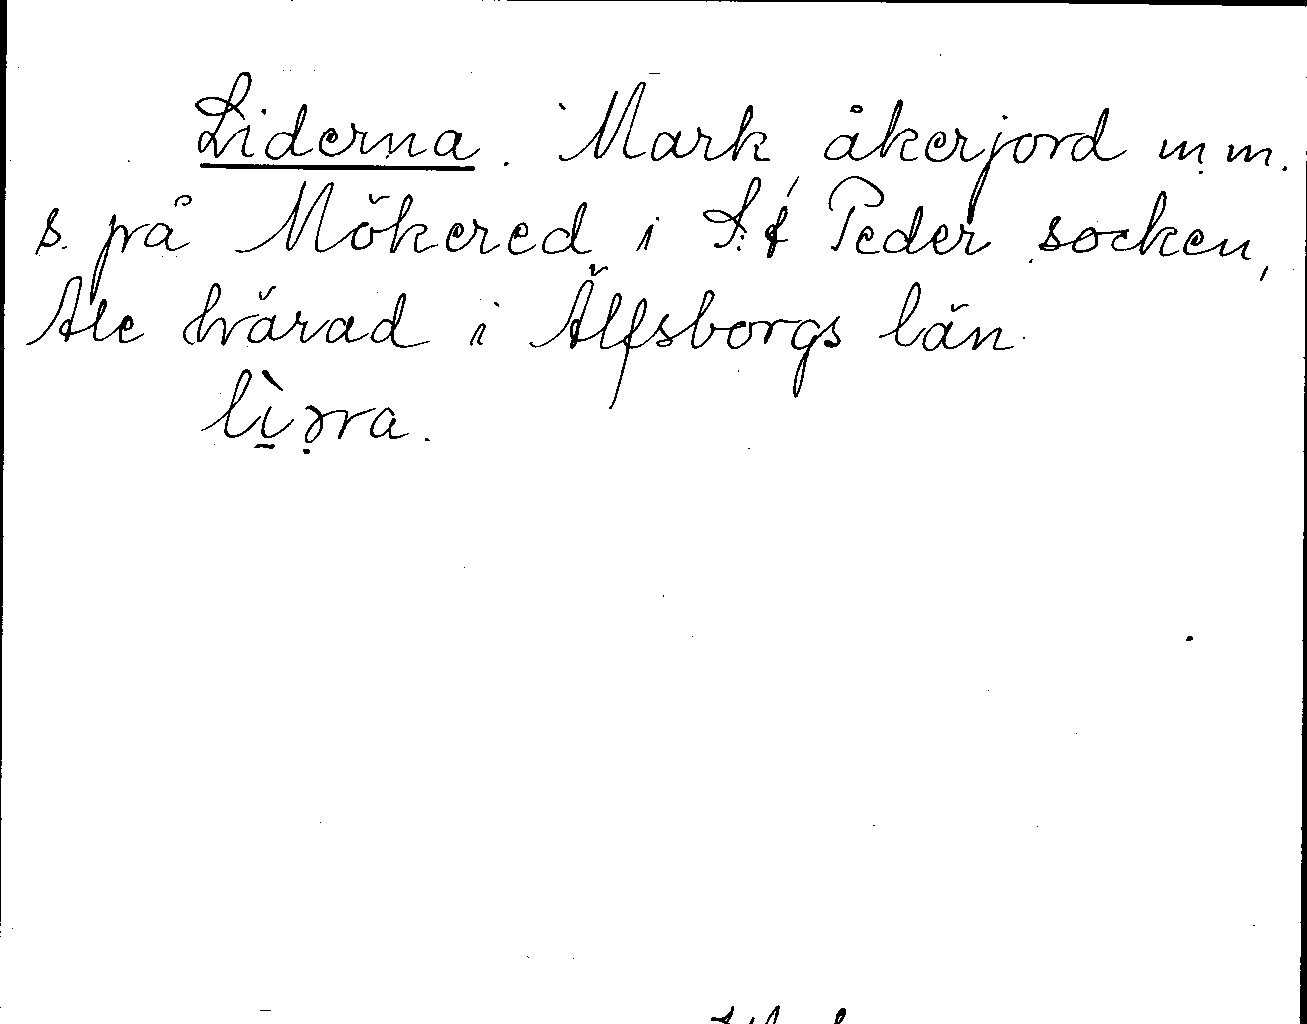 Liderna. Mark åkerjord m.m.
s. på Mökered i S:t Peder socken,
Ale härad i Älfsborgs län
lìərra.